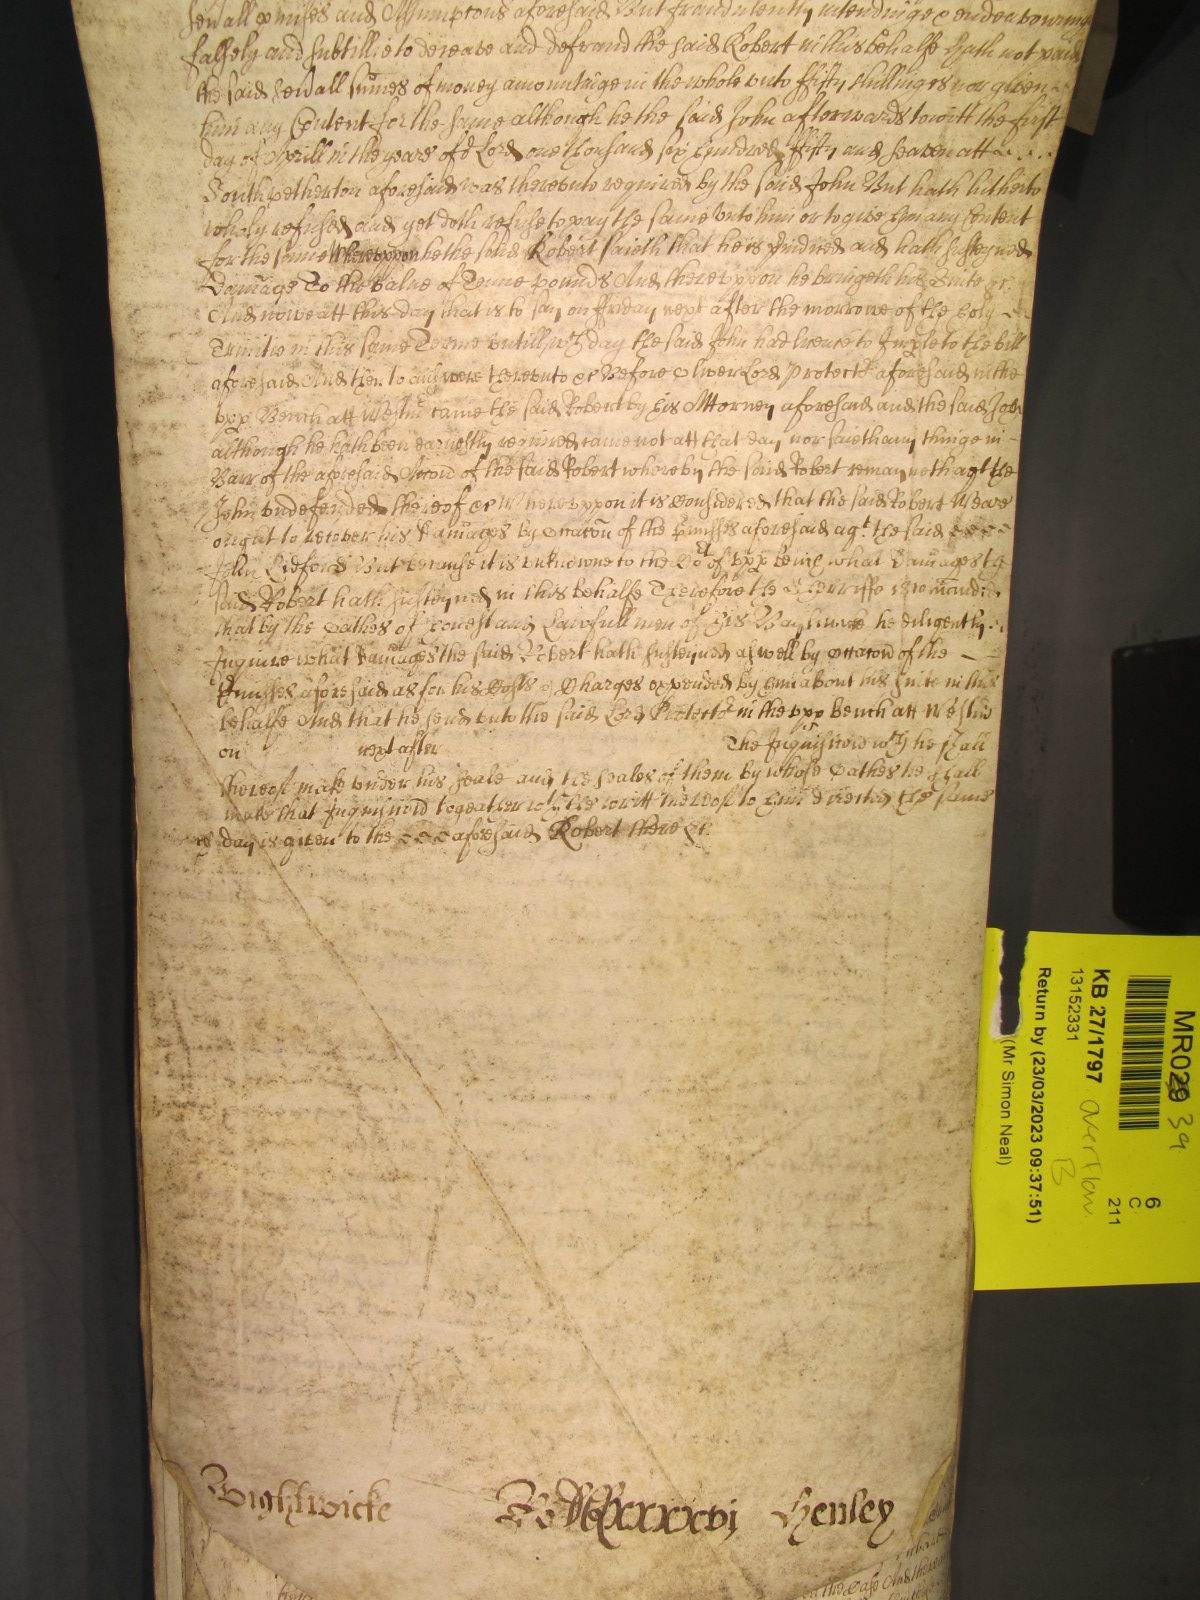 sevall pmises and Assumptons aforesaid But fraudulently intendinge & endeavouringe
falsely and subtillie to deceave and defraud the said Robert in this behalfe hath not paid
the said sevall sumes of money amountinge in the whole unto ffifty shillinges nor given
him any Content for the same although he the said John afterwards to witt the first
day of Aprill in the yeare of or Lord one thousand six hundred ffifty and seaven att
Southpetherton aforesaid was thereunto required by the said John But hath hitherto
wholy refused and yet doth refuse to pay the same unto him or to give him any Content
for the same Whereuppon he the said Robert saieth that he is iniured and hath susteyned
Damage To the value of Tenne pounds And thereuppon he bringeth his Suite &c.
And nowe att this day that is to say on ffriday next after the morrowe of the holy
Trinitie in this same Terme untill wch day the said John had licence to Imple to the bill
aforesaid And then to answere thereunto &c Before Oliver Lord Protector aforesaid in the
upp Bench att Westmr came the said Robert by his Attorney aforesaid and the said John
although he hath been earnestly required came not att that day nor saieth any thinge in
Barr of the aforesaid Accon of the said Robert whereby the said Robert remayneth agt the
John undefended thereof &c Whereuppon it is Considered that the said Robert Weare
ought to recover his Damages by occacon of the pmisses aforesaid agt. the said
John But because it is unknowne to the Cot of upp bench what Damages the
said Robert hath susteyned in this behalfe Therefore the Sherriffe is comanded
that by the Oathes of honest and Lawfull men of his Baylywicke he diligently
Inquire what Damages the said Robert hath susteyned as well by occacon of the
pmisses aforesaid as for his Costs & Charges expended by him about his suite in this
behalfe And that he send unto the said Lord Protector in the upp bench att Westmr
on next after The Inquisicon wch he shall
thereof make under his seale and the seales of them by whose Oathes he shall
make that Inquisicon togeather wth the writt thereof to him directed the same
day is given to the aforesaid Robert there &c.
Wightwicke Ro xxxxvi Henley
MR029 39
6
C
211
KB 27/1797 overflow
B
13152331
Return by (23/03/2023 09:37:51)
(Mr Simon Neal)